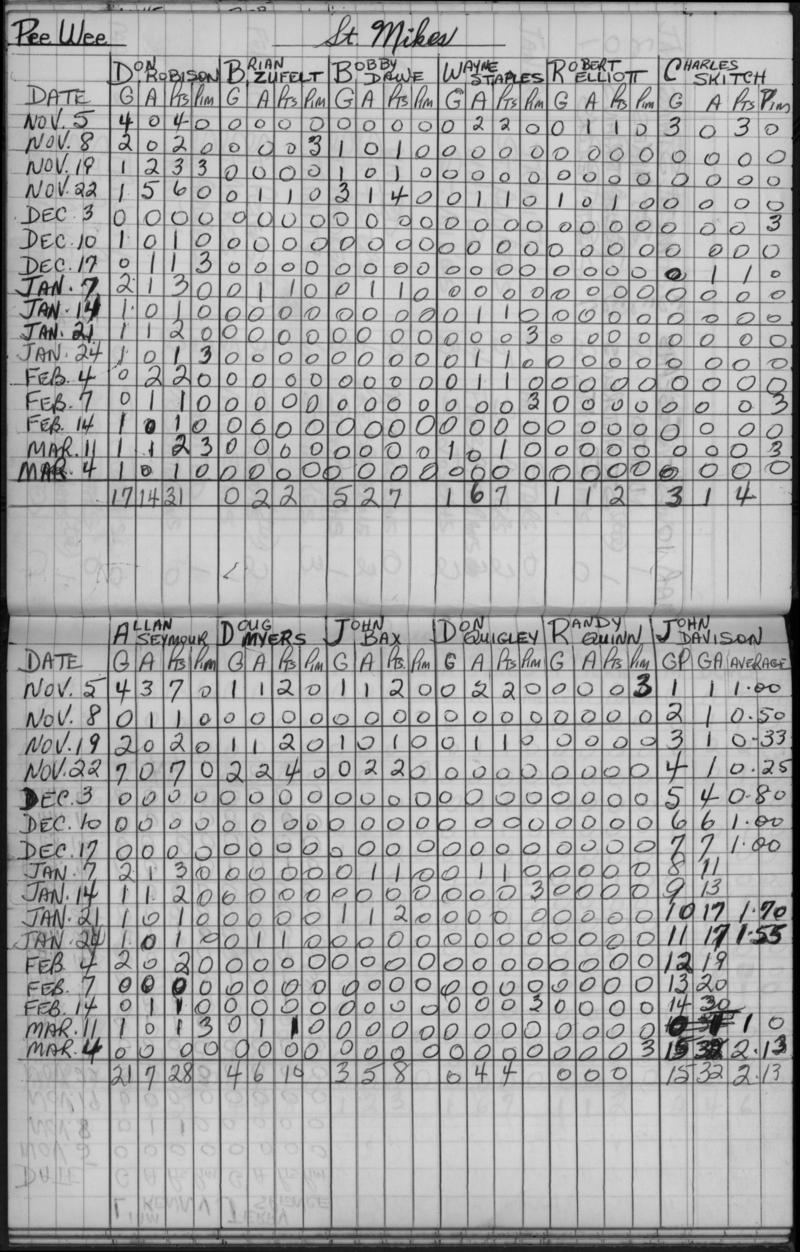 Pee Wee St. Mikes
DON ROBISON BRIAN ZUFELT BOBBY DAWE WAYNE STAPLES ROBERT ELLIOTT CHARLES SKITCH
DATE G A Pts Pim G A Pts Pim G A Pts Pim G A Pts Pim G A Pts Pim G A Pts Pim
NOV. 5 4 0 4 0 0 0 0 0 0 0 0 0 0 2 2 0 0 1 1 0 3 0 3 0
NOV. 8 2 0 2 0 0 0 0 3 1 0 1 0 0 0 0 0 0 0 0 0 0 0 0 0
NOV. 19 1 2 3 3 0 0 0 0 1 0 1 0 0 0 0 0 0 0 0 0 0 0 0 0
NOV. 22 1 5 6 0 0 1 1 0 3 1 4 0 0 1 1 0 1 0 1 0 0 0 0 0
DEC 3 0 0 0 0 0 0 0 0 0 0 0 0 0 0 0 0 0 0 0 0 0 0 0 3
DEC. 10 1 0 1 0 0 0 0 0 0 0 0 0 0 0 0 0 0 0 0 0 0 0 0 0
DEC. 17 0 1 1 3 0 0 0 0 0 0 0 0 0 0 0 0 0 0 0 0 0 1 1 0
JAN. 7 2 1 3 0 0 1 1 0 0 1 1 0 0 0 0 0 0 0 0 0 0 0 0 0
JAN. 14 1 0 1 0 0 0 0 0 0 0 0 0 0 1 1 0 0 0 0 0 0 0 0 0
JAN. 21 1 1 2 0 0 0 0 0 0 0 0 0 0 0 0 3 0 0 0 0 0 0 0 0
JAN. 24 1 0 1 3 0 0 0 0 0 0 0 0 0 1 1 0 0 0 0 0 0 0 0 0
FEB. 4 0 2 2 0 0 0 0 0 0 0 0 0 0 1 1 0 0 0 0 0 0 0 0 0
FEB. 7 0 1 1 0 0 0 0 0 0 0 0 0 0 0 0 3 0 0 0 0 0 0 0 3
FEB. 14 1 0 1 0 0 0 0 0 0 0 0 0 0 0 0 0 0 0 0 0 0 0 0 0
MAR. 11 1 1 2 3 0 0 0 0 0 0 0 0 1 0 1 0 0 0 0 0 0 0 0 3
MAR. 4 1 0 1 0 0 0 0 0 0 0 0 0 0 0 0 0 0 0 0 0 0 0 0 0
17 14 31 0 2 2 5 2 7 1 6 7 1 1 2 3 1 4
ALLAN SEYMOUR DOUG MYERS JOHN BAX DON QUIGLEY RANDY QUINN JOHN DAVISON
DATE G A Pts Pim G A Pts Pim G A Pts Pim G A Pts Pim G A Pts Pim GP GA AVERAGE
NOV. 5 4 3 7 0 1 1 2 0 1 1 2 0 0 2 2 0 0 0 0 3 1 1 1.00
NOV. 8 0 1 1 0 0 0 0 0 0 0 0 0 0 0 0 0 0 0 0 0 2 1 0.50
NOV. 19 2 0 2 0 1 1 2 0 1 0 1 0 0 1 1 0 0 0 0 0 3 1 0.33
NOV. 22 7 0 7 0 2 2 4 0 0 2 2 0 0 0 0 0 0 0 0 0 4 1 0.25
DEC. 3 0 0 0 0 0 0 0 0 0 0 0 0 0 0 0 0 0 0 0 0 5 4 0.80
DEC. 10 0 0 0 0 0 0 0 0 0 0 0 0 0 0 0 0 0 0 0 0 6 6 1.00
DEC. 17 0 0 0 0 0 0 0 0 0 0 0 0 0 0 0 0 0 0 0 0 7 7 1.00
JAN. 7 2 1 3 0 0 0 0 0 0 1 1 0 0 1 1 0 0 0 0 0 8 11
JAN. 14 1 1 2 0 0 0 0 0 0 0 0 0 0 0 0 3 0 0 0 0 9 13
JAN. 21 1 0 1 0 0 0 0 0 1 1 2 0 0 0 0 0 0 0 0 0 10 17 1.70
JAN. 24 1 0 1 0 0 1 1 0 0 0 0 0 0 0 0 0 0 0 0 0 11 17 1.55
FEB. 4 2 0 2 0 0 0 0 0 0 0 0 0 0 0 0 0 0 0 0 0 12 19
FEB. 7 0 0 0 0 0 0 0 0 0 0 0 0 0 0 0 0 0 0 0 0 13 20
FEB. 14 0 1 1 0 0 0 0 0 0 0 0 0 0 0 0 3 0 0 0 0 14 30
MAR. 11 1 0 1 3 0 1 1 0 0 0 0 0 0 0 0 0 0 0 0 0 1 0
MAR. 4 0 0 0 0 0 0 0 0 0 0 0 0 0 0 0 0 0 0 0 3 15 32 2.13
21 7 28 4 6 10 3 5 8 0 4 4 0 0 0 15 32 2.13